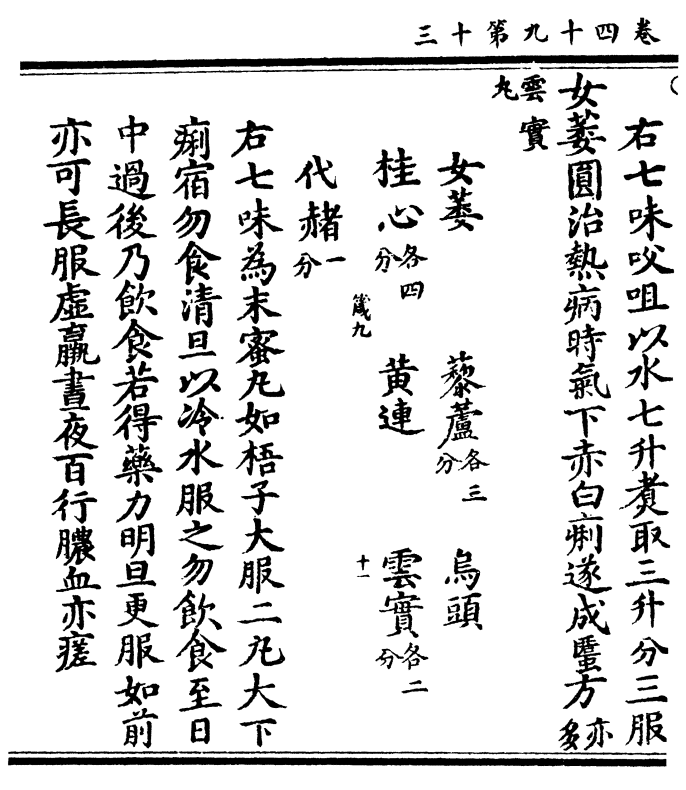 卷四十九第十三
右七味㕮咀以水七升煑取三升分三服
女萎圓治熱病時氣下赤白痢遂成䘌方亦名
雲實丸
女萎 藜蘆各三分 烏頭
桂心各四分 黃連 雲實各二分
九 十一
代赭一分
右七味為末蜜丸如梧子大服二丸大下
痢宿勿食清旦以冷水服之勿飲食至日
中過後乃飲食若得藥力明旦更服如前
亦可長服虛羸晝夜百行膿血亦瘥